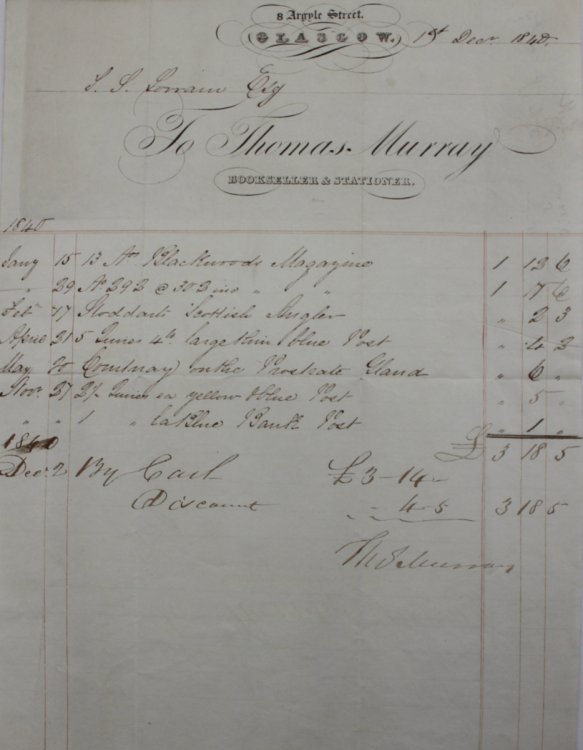 8 Argyle Street.
(GLASGOW.) 1st Decr 1840.
Esq
To Thomas Murray
BOOKSELLER & STATIONER.
1840
Jany 15 13 No Blackwoods Magazine 1 12 6
" 29 No 292 @ 303 inc " " 1 7 6
Feb 17 Stoddarts Scottish Angler " 2 3
April 21 5 4to large thin blue Post " 4 2
May 20 Courtnay on the Prostate Gland " 6 "
Novr 27 2½ ea yellow & blue Post " 5 "
" " 1 " La Blue Bank Post " 1 "
£ 3 18 5
1840
Decr 2 By Cash £3-14-
Discount - 4-5 3 18 5
Thos Murray